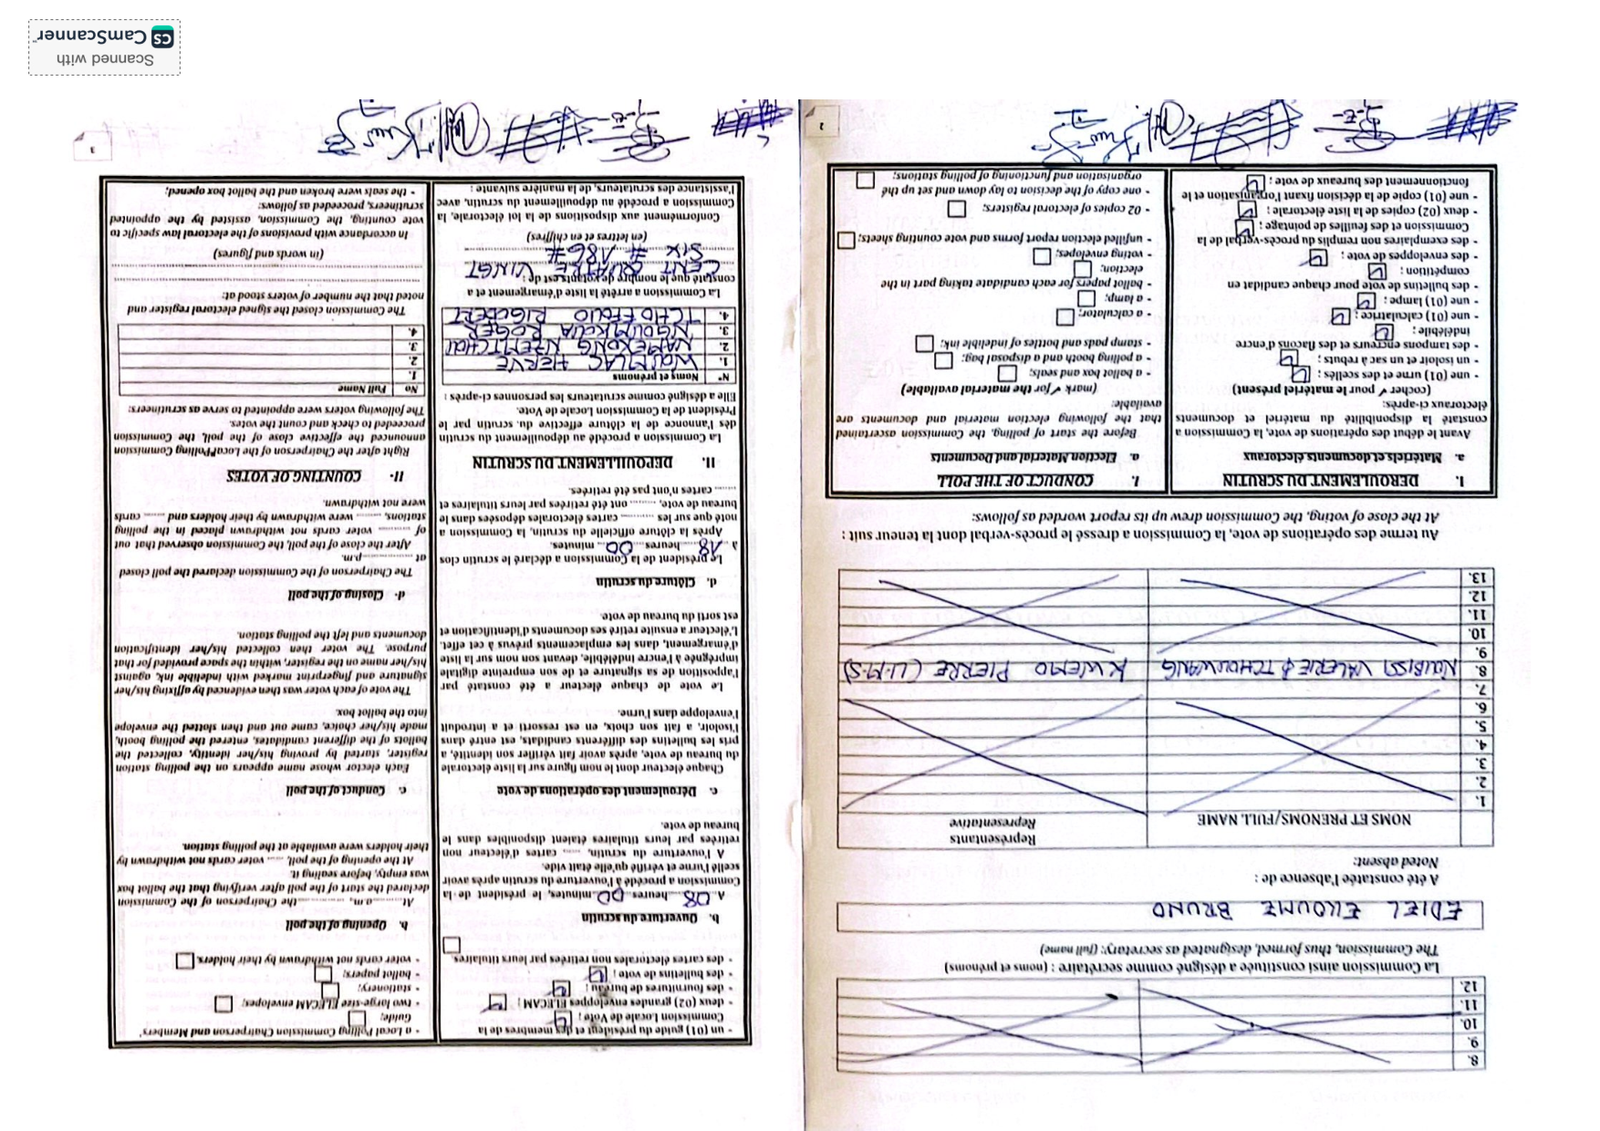 8.
9.
10.
11.
12.
La Commission ainsi constituée a désigné comme secrétaire : (noms et prénoms)
The Commission, thus formed, designated as secretary: (full name)
EDIEL ELLOUME BRUNO
A été constatée l'absence de :
Noted absent:
NOMS ET PRENOMS/FULL NAME
Représentants
Representative
1.
2.
3.
4.
5.
6.
7.
8. VALERIE & KWEMO PIERRE
9.
10.
11.
12.
13.
Au terme des opérations de vote, la Commission a dressé le procès-verbal dont la teneur suit :
At the close of voting, the Commission drew up its report worded as follows:
I. DEROULEMENT DU SCRUTIN
a. Matériels et documents électoraux
Avant le début des opérations de vote, la Commission a
constaté la disponibilité du matériel et documents
électoraux ci-après:
(cocher ✓ pour le matériel présent)
- une (01) urne et des scellés ;
- un isoloir et un sac à rebuts ;
- des tampons encreurs et des flacons d'encre
indélébile ;
- une (01) calculatrice ;
- une (01) lampe ;
- des bulletins de vote pour chaque candidat en
compétition ;
- des enveloppes de vote ;
- des exemplaires non remplis du procès-verbal de la
Commission et des feuilles de pointage ;
- deux (02) copies de la liste électorale ;
- une (01) copie de la décision fixant l'organisation et le
fonctionnement des bureaux de vote ;
I. CONDUCT OF THE POLL
a. Election Material and Documents
Before the start of polling, the Commission ascertained
that the following election material and documents are
available:
(mark ✓ for the material available)
- a ballot box and seals;
- a polling booth and a disposal bag;
- stamp pads and bottles of indelible ink;
- a calculator;
- a lamp;
- ballot papers for each candidate taking part in the
election;
- voting envelopes;
- unfilled election report forms and vote counting sheets;
- 02 copies of electoral registers;
- one copy of the decision to lay down and set up the
organisation and functioning of polling stations;
2
- un (01) guide du président et des membres de la
Commission Locale de Vote ;
- deux (02) grandes enveloppes ELECAM ;
- des fournitures de bureau ;
- des bulletins de vote ;
- des cartes électorales non retirées par leurs titulaires.
b. Ouverture du scrutin
A 08 heures 00 minutes, le président de la
Commission a procédé à l'ouverture du scrutin après avoir
scellé l'urne et vérifié qu'elle était vide.
A l'ouverture du scrutin, ..... cartes d'électeur non
retirées par leurs titulaires étaient disponibles dans le
bureau de vote.
c. Déroulement des opérations de vote
Chaque électeur dont le nom figure sur la liste électorale
du bureau de vote, après avoir fait vérifier son identité, a
pris les bulletins des différents candidats, est entré dans
l'isoloir, a fait son choix, en est ressorti et a introduit
l'enveloppe dans l'urne.
Le vote de chaque électeur a été constaté par
l'apposition de sa signature et de son empreinte digitale
imprégnée à l'encre indélébile, devant son nom sur la liste
d'émargement, dans les emplacements prévus à cet effet.
L'électeur a ensuite retiré ses documents d'identification et
est sorti du bureau de vote.
d. Clôture du scrutin
Le président de la Commission a déclaré le scrutin clos
à 18 heures 00 minutes.
Après la clôture officielle du scrutin, la Commission a
noté que sur les ........ cartes électorales déposées dans le
bureau de vote, ........ ont été retirées par leurs titulaires et
...... cartes n'ont pas été retirées.
II. DEPOUILLEMENT DU SCRUTIN
La Commission a procédé au dépouillement du scrutin
dès l'annonce de la clôture effective du. scrutin par le
Président de la Commission Locale de Vote.
Elle a désigné comme scrutateurs les personnes ci-après :
N° Noms et prénoms
1. HERVE
2. NAMEKONG
3. ROGER
4. TCHOFFOUO RIGOBERT
La Commission a arrêté la liste d'émargement et a
constaté que le nombre de votants est de :
CENT QUATRE VINGT
SIX # 186 #
(en lettres et en chiffres)
Conformément aux dispositions de la loi électorale, la
Commission a procédé au dépouillement du scrutin, avec
l'assistance des scrutateurs, de la manière suivante :
- a Local Polling Commission Chairperson and Members'
Guide;
- two large-size ELECAM envelopes;
- stationery;
- ballot papers;
- voter cards not withdrawn by their holders.
b. Opening of the poll
At..........a.m, ............the Chairperson of the Commission
declared the start of the poll after verifying that the ballot box
was empty, before sealing it.
At the opening of the poll, ..... voter cards not withdrawn by
their holders were available at the polling station.
c. Conduct of the poll
Each elector whose name appears on the polling station
register, started by proving his/her identity, collected the
ballots of the different candidates, entered the polling booth,
made his/her choice, came out and then slotted the envelope
into the ballot box.
The vote of each voter was then evidenced by affixing his/her
signature and fingerprint marked with indelible ink, against
his/her name on the register, within the space provided for that
purpose. The voter then collected his/her identification
documents and left the polling station.
d- Closing of the poll
The Chairperson of the Commission declared the poll closed
at ..................p.m.
After the close of the poll, the Commission observed that out
of ........... voter cards not withdrawn placed in the polling
stations, ........ were withdrawn by their holders and ....... cards
were not withdrawn.
II- COUNTING OF VOTES
Right after the Chairperson of the Local Polling Commission
announced the effective close of the poll, the Commission
proceeded to check and count the votes.
The following voters were appointed to serve as scrutineers:
No Full Name
1.
2.
3.
4.
The Commission closed the signed electoral register and
noted that the number of voters stood at:
(in words and figures)
In accordance with provisions of the electoral law specific to
vote counting, the Commission, assisted by the appointed
scrutineers, proceeded as follows:
- the seals were broken and the ballot box opened;
3
Scanned with
CS CamScanner